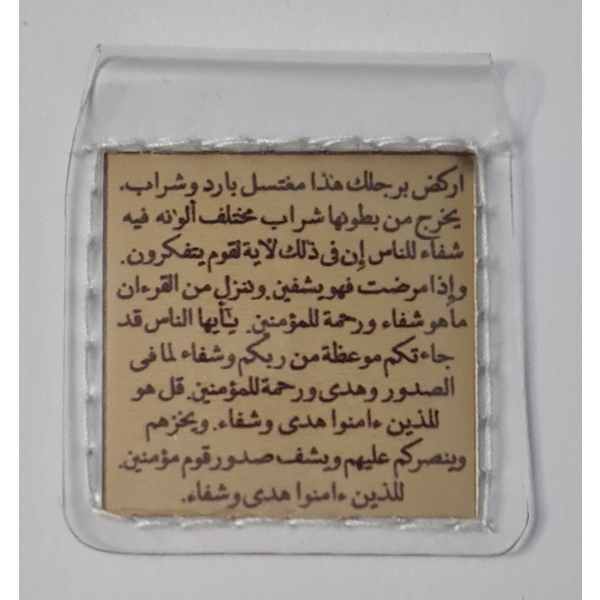 اركض برجلك هذا مغتسل بارد وشراب.
يخرج من بطونها شراب مختلف ألوٰنه فيه
شفاء للناس إن فى ذلك لآية لقوم يتفكرون.
وإذا مرضت فهو يشفين. وننزل من القرءان
ما هو شفاء ورحمة للمؤمنين. يٰأيها الناس قد
جاءتكم موعظة من ربكم وشفاء لما فى
الصدور وهدى ورحمة للمؤمنين. قل هو
للذين ءامنوا هدى وشفاء. ويخزهم
وينصركم عليهم ويشف صدور قوم مؤمنين.
للذين ءامنوا هدى وشفاء.